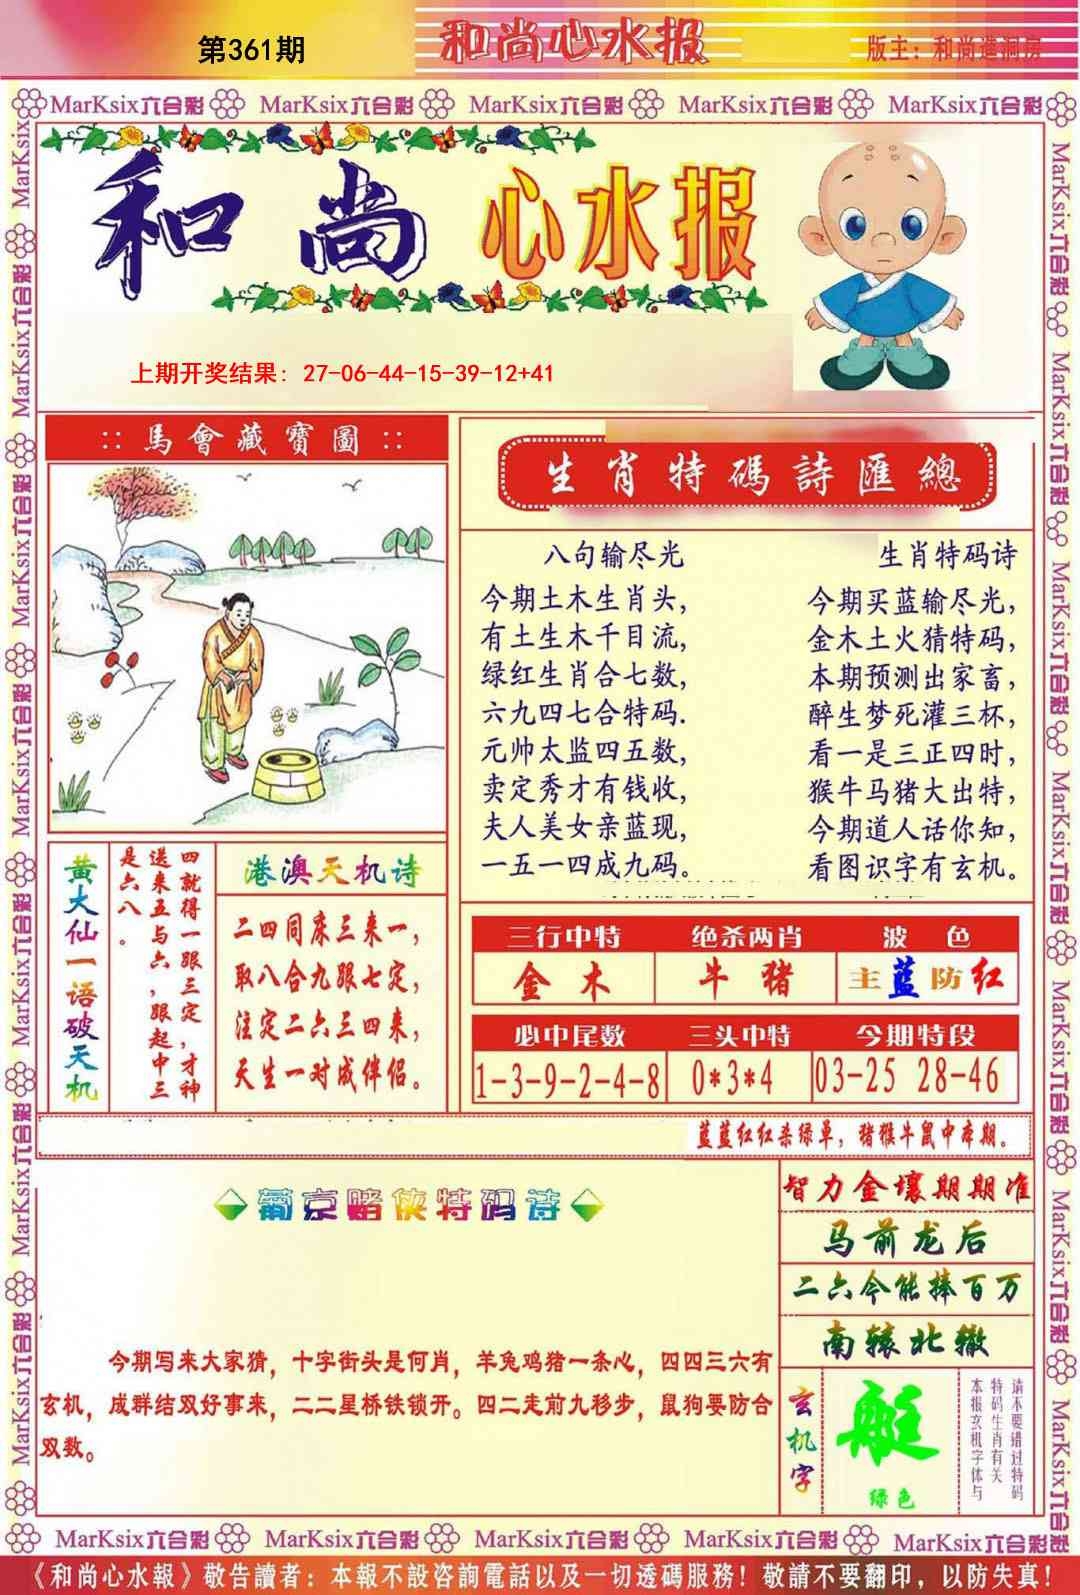 第361期
和尚心水报
版主：和尚造洞房
MarKsix六合彩 MarKsix六合彩 MarKsix六合彩 MarKsix六合彩 MarKsix六合彩
和尚心水报
上期开奖结果：27-06-44-15-39-12+41
::馬會藏寶圖::
生肖特碼詩匯總
八句输尽光
今期土木生肖头，
有土生木千目流，
绿红生肖合七数，
六九四七合特码.
元帅太监四五数，
卖定秀才有钱收，
夫人美女亲蓝现，
一五一四成九码。
生肖特码诗
今期买蓝输尽光，
金木土火猜特码，
本期预测出家畜，
醉生梦死灌三杯，
看一是三正四时，
猴牛马猪大出特，
今期道人话你知，
看图识字有玄机。
黄大仙一语破天机
四就得一跟三定，才神
送来五与六，跟起中三
是六八。
港澳天机诗
二四同床三来一，
取八合九跟七定，
注定二六三四来，
天生一对成伴侣。
三行中特 绝杀两肖 波色
金木 牛猪 主蓝防红
必中尾数 三头中特 今期特段
1-3-9-2-4-8 0*3*4 03-25 28-46
蓝蓝红红杀绿单，猪猴牛鼠中本期。
葡京赌侠特码诗
今期写来大家猜，十字街头是何肖，羊兔鸡猪一条心，四四三六有
玄机，成群结双好事来，二二星桥铁锁开。四二走前九移步，鼠狗要防合
双数。
智力金壤期期准
马前龙后
二六今能捧百万
南辕北辙
玄机字
艇
绿色
请不要错过特码
特码生肖有关
本报玄机字体与
MarKsix六合彩 MarKsix六合彩 MarKsix六合彩 MarKsix六合彩 MarKsix六合彩
《和尚心水報》敬告讀者：本報不設咨詢電話以及一切透碼服務！敬請不要翻印，以防失真！